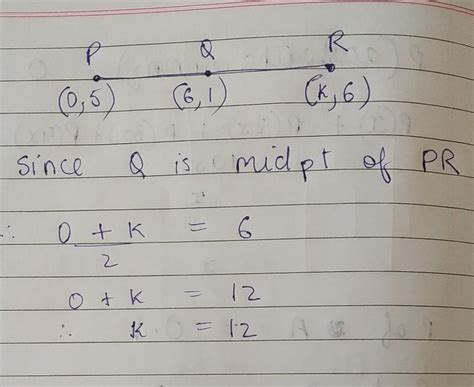 P Q R
(0,5) (6,1) (K,6)
Since Q is midpt of PR
∴ 0 + K / 2 = 6
0 + K = 12
∴ K = 12